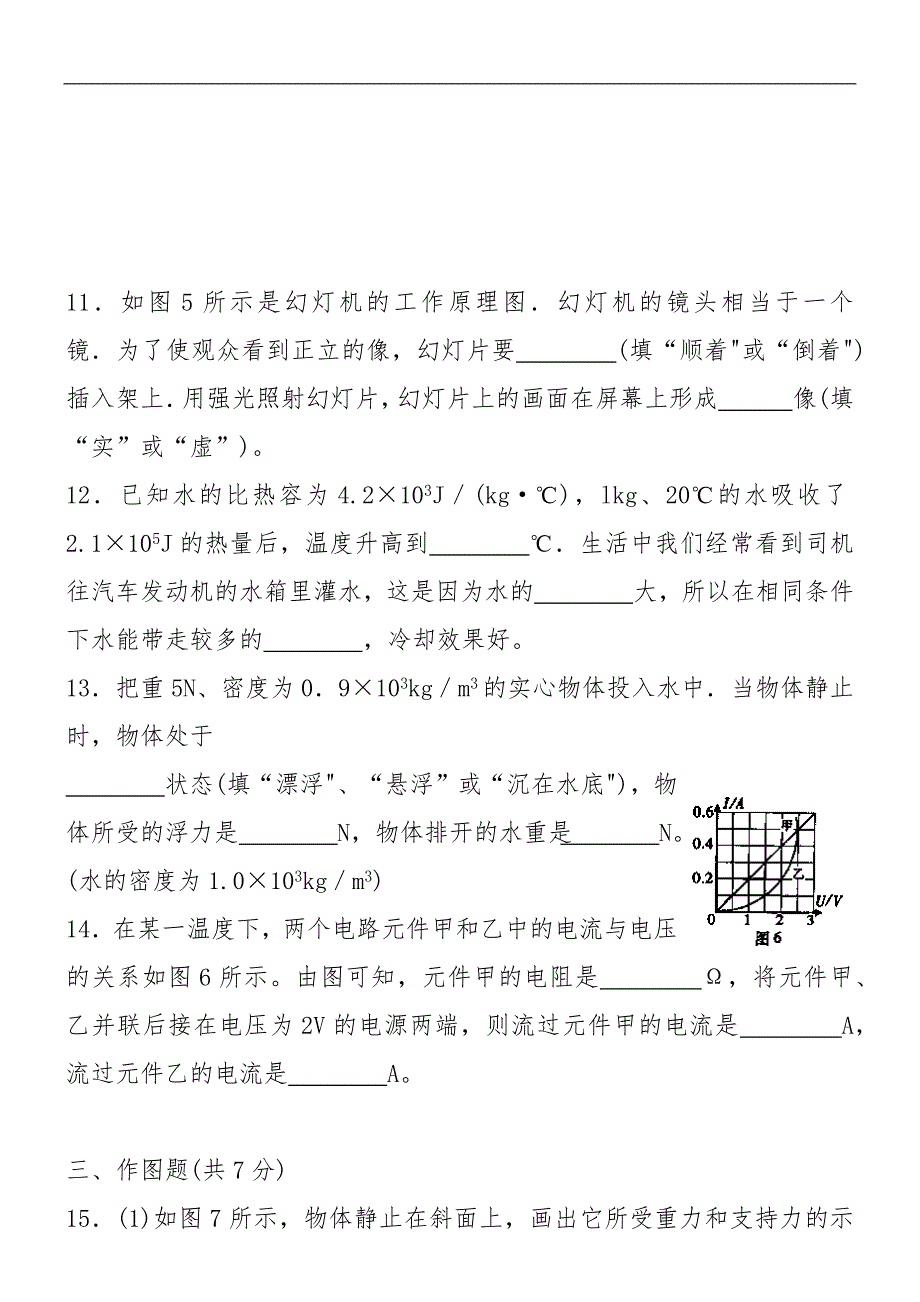 11．如图5所示是幻灯机的工作原理图．幻灯机的镜头相当于一个
镜．为了使观众看到正立的像，幻灯片要________(填“顺着"或“倒着")
插入架上．用强光照射幻灯片，幻灯片上的画面在屏幕上形成______像(填
“实”或“虚”)。
12．已知水的比热容为4.2×10³J／(kg•℃)，lkg、20℃的水吸收了
2.1×10⁵J的热量后，温度升高到________℃．生活中我们经常看到司机
往汽车发动机的水箱里灌水，这是因为水的________大，所以在相同条件
下水能带走较多的________，冷却效果好。
13．把重5N、密度为0．9×10³kg／m³的实心物体投入水中．当物体静止
时，物体处于
________状态(填“漂浮"、“悬浮”或“沉在水底")，物
体所受的浮力是________N，物体排开的水重是________N。
(水的密度为1.0×10³kg／m³)
I/A
0.6
甲
0.4
乙
0.2
U/V
0 1 2 3
图6
14．在某一温度下，两个电路元件甲和乙中的电流与电压
的关系如图6所示。由图可知，元件甲的电阻是________Ω，将元件甲、
乙并联后接在电压为2V的电源两端，则流过元件甲的电流是________A，
流过元件乙的电流是________A。
三、作图题(共7分)
15．(1)如图7所示，物体静止在斜面上，画出它所受重力和支持力的示